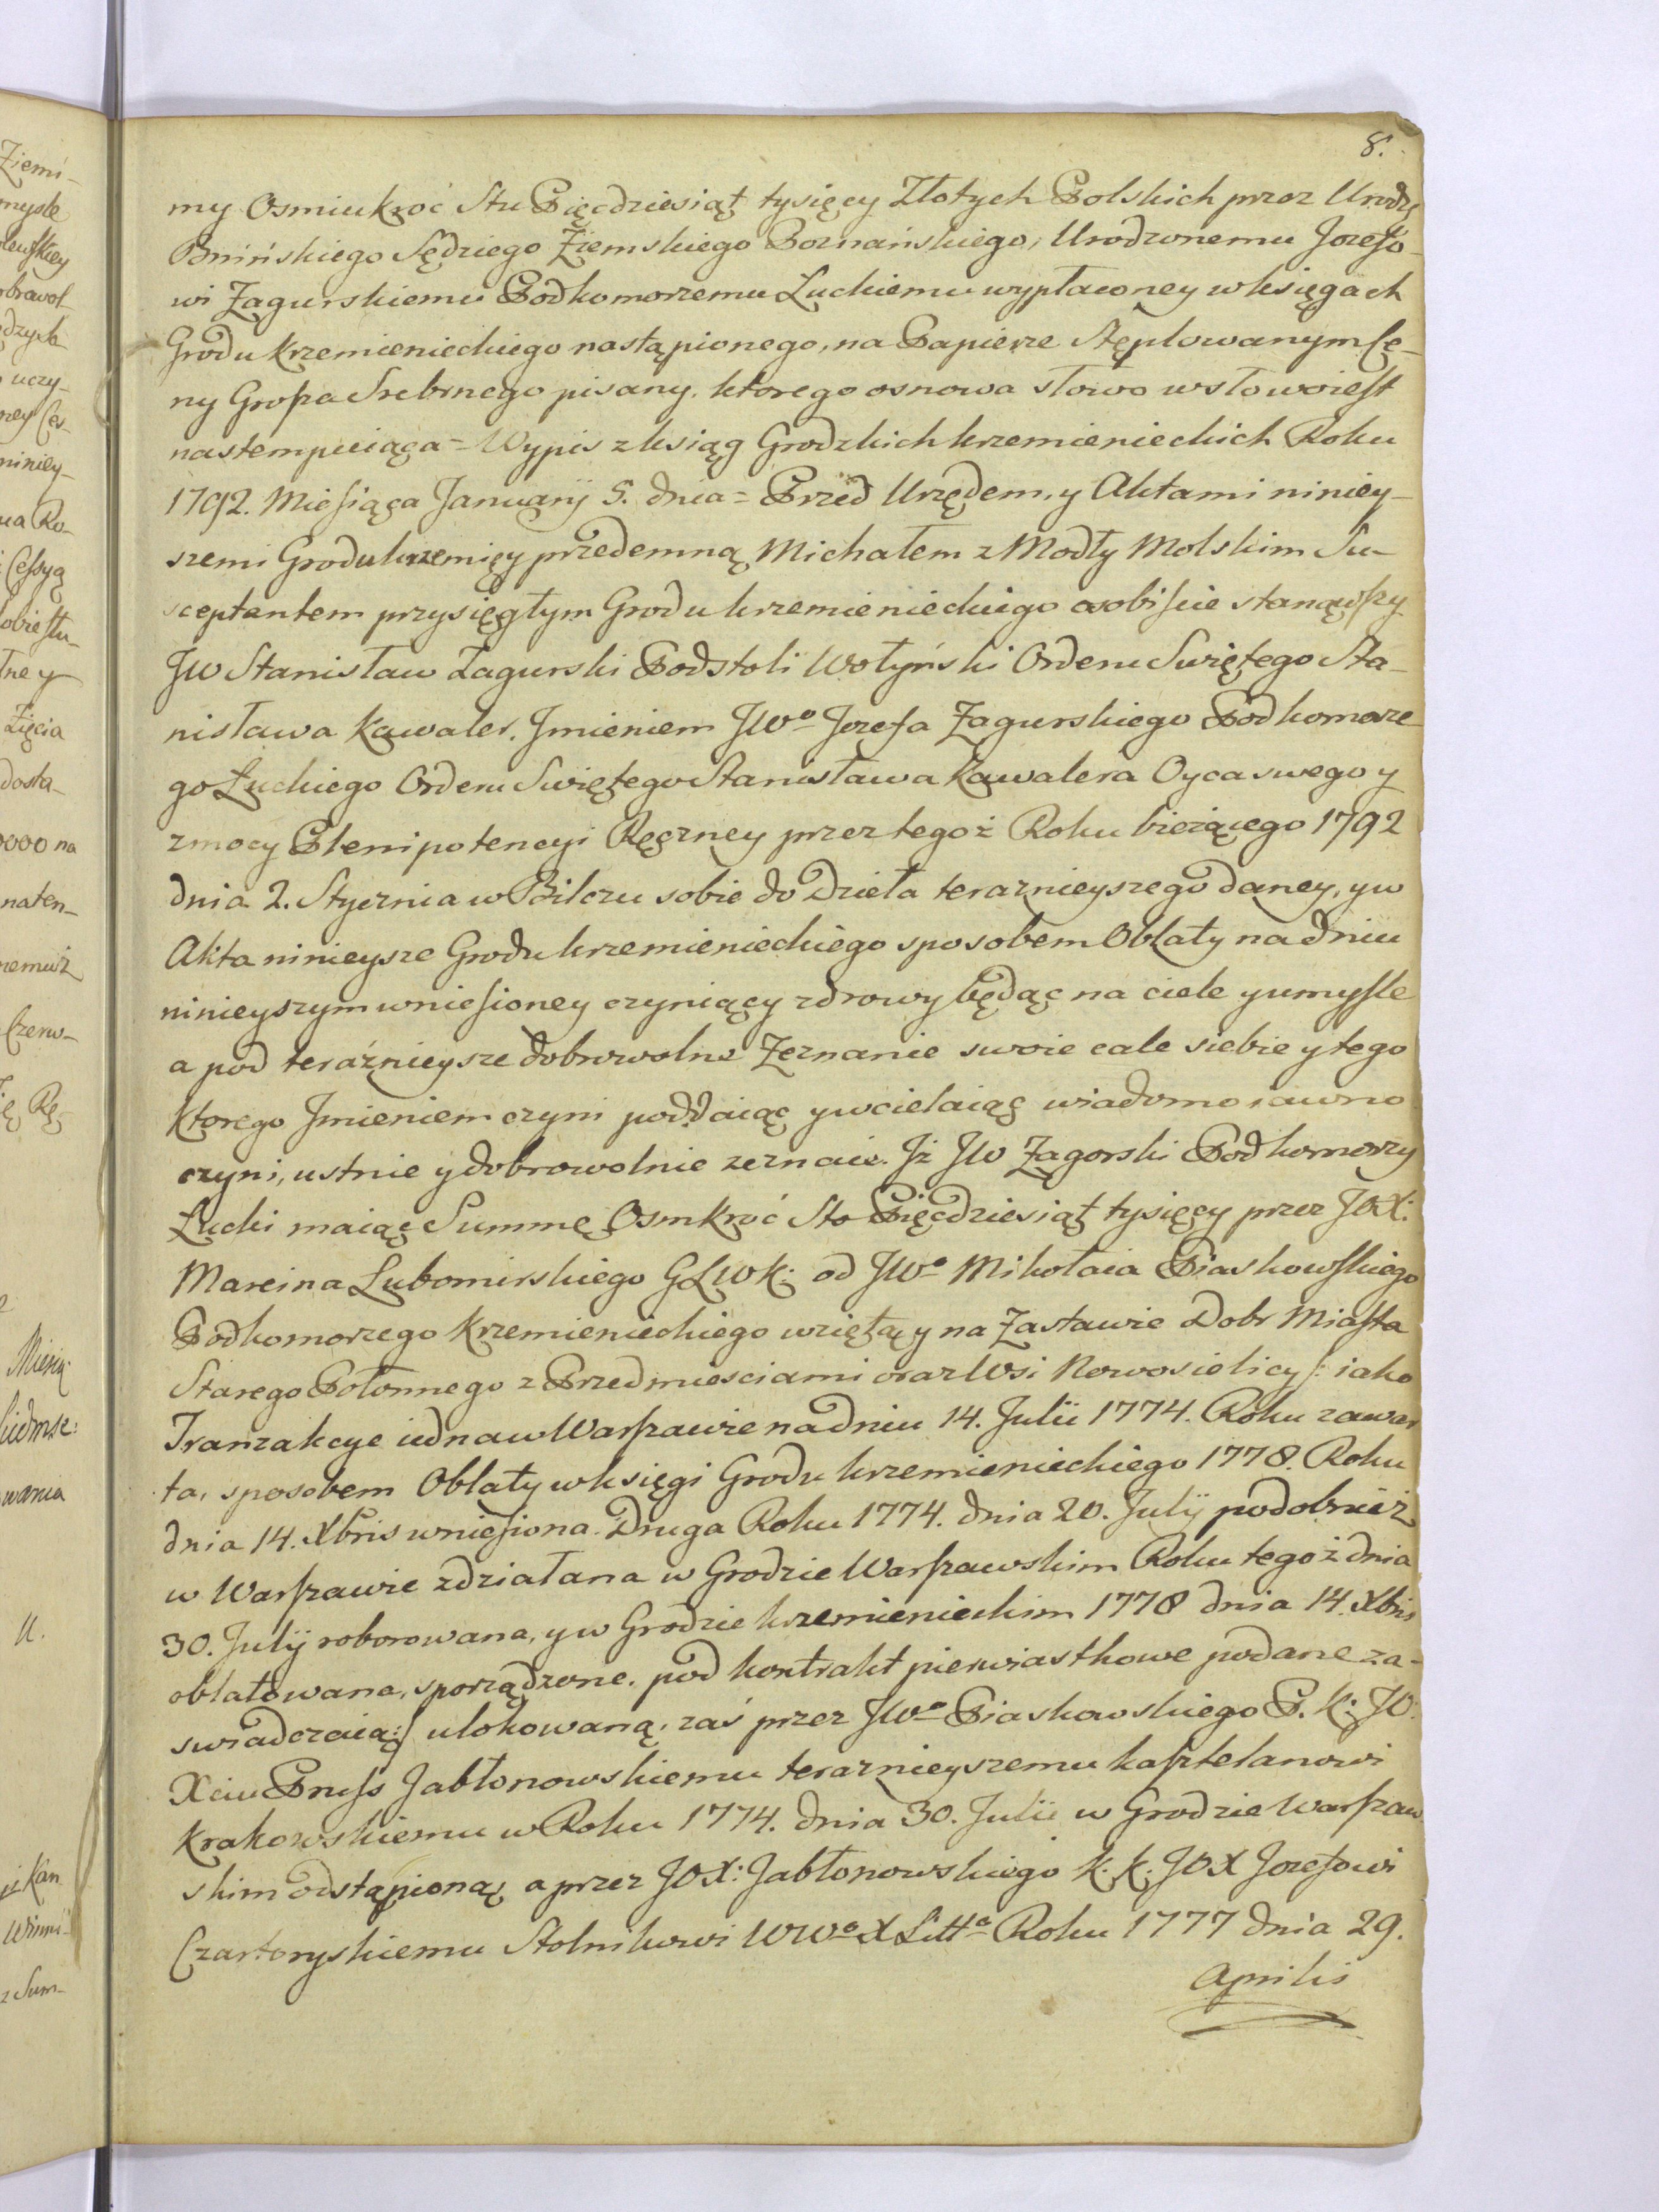 8.
my Osmiukroć Stu Pięcdziesiąt tysięcy Złotych Polskich przez Urodz.
Bnińskiego Sędziego Ziemskiego Poznańskiego, Urodzonemu Jozefo-
wi Zagurskiemu Podkomorzemu Luckiemu wypłaconey w księgach
Grodu Krzemienieckiego nastąpionego, na Papierze Stęplowanym Ce-
ny Grosza Srebrnego pisany. ktorego osnowa słowo w słowo iest
nastempuiąca = Wypis z ksiąg Grodzkich krzemienieckich Roku
1792. Miesiąca Januarij 5. dnia = Przed Urzędem, y Aktami niniey-
szemi Grodu krzemię y przedemną Michałem z Modły Molskim Su-
sceptantem przysięgłym Grodu krzemienieckiego osobiscie stanąwszy
JW Stanisław Zagurski Podstoli Wołyński Orderu Swiętego Sta-
nisława Kawaler. Jmieniem JWo Jozefa Zagurskiego Podkomorze
go Łuckiego Orderu Swiętego Stanisława Kawalera Oyca swego y
z mocy Plenipotencyi Ręczney przez tegoż Roku bieżącego 1792
dnia 2. Stycznia w Bilczu sobie do Dzieła teraznieyszego daney, y w
Akta ninieysze Grodu krzemienieckiego sposobem Oblaty na dniu
ninieyszym wniesioney czyniący zdrowy będąc na ciele y umysle
a pod teraźnieysze dobrowolne Zeznanie swoie cale siebie y tego
ktorego Jmieniem czyni poddaiąc y wcielaiąc wiadomo iawno
czyni, ustnie y dobrowolnie zeznaie. Jż JW Zagorski Podkomorzy
Łucki maiąc Summę Osmkroć Sto Pięcdziesiąt tysięcy przez JOX:
Marcina Lubomirskiego GLWK: od JWo Mikołaia Piaskowskiego
Podkomorzego Krzemienieckiego wziętą y na Zastawie Dobr Miasta
Starego Połonnego z Przedmiesciami oraz Wsi Nowosielicy /: iako
Tranzakcye iedna w Warszawie na dniu 14. Julii 1774. Roku zawar
ta, sposobem Oblaty w księgi Grodu krzemienieckiego 1778. Roku
dnia 14. Xbris wniesiona. Druga Roku 1774. dnia 20. Julij podobnież
w Warszawie zdziałana w Grodzie Warszawskim Roku tegoż dnia
30. Julij roborowana, y w Grodzie krzemienieckim 1778 dnia 14. Xbris
oblatowana, sporządzone. pod kontrakt pierwiastkowe podane za-
swiadczaią :/ ulokowaną, zaś przez JWo Piaskowskiego P. K: JO:
Xciu Pruss Jabłonowskiemu teraznieyszemu kasztelanowi
Krakowskiemu w Roku 1774. dnia 30. Julii w Grodzie Warszaw
skim odstąpioną a przez JOX: Jabłonowskiego K. K: JOX Jozefowi
Czartoryskiemu Stolnikowi WWo X Litto Roku 1777 dnia 29.
Aprilis
Ziemi-
mysle
obrawol-
uczy-
niniey-
Zięcia
dosta-
0000 na
naten-
Czerw-
Rę-
wania
z Sum-